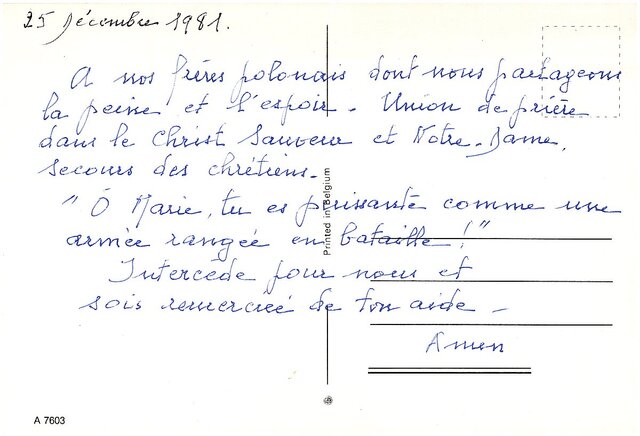 25 Décembre 1981.
A nos frères polonais dont nous partageons
la peine et l'espoir - Union de prière
dans le Christ Sauveur et Notre-Dame,
secours des chrétiens.-
"Ô Marie, tu es puissante comme une
armée rangée en bataille!"
Intercède pour nous et
sois remerciée de ton aide -
Amen
Printed in Belgium
A 7603